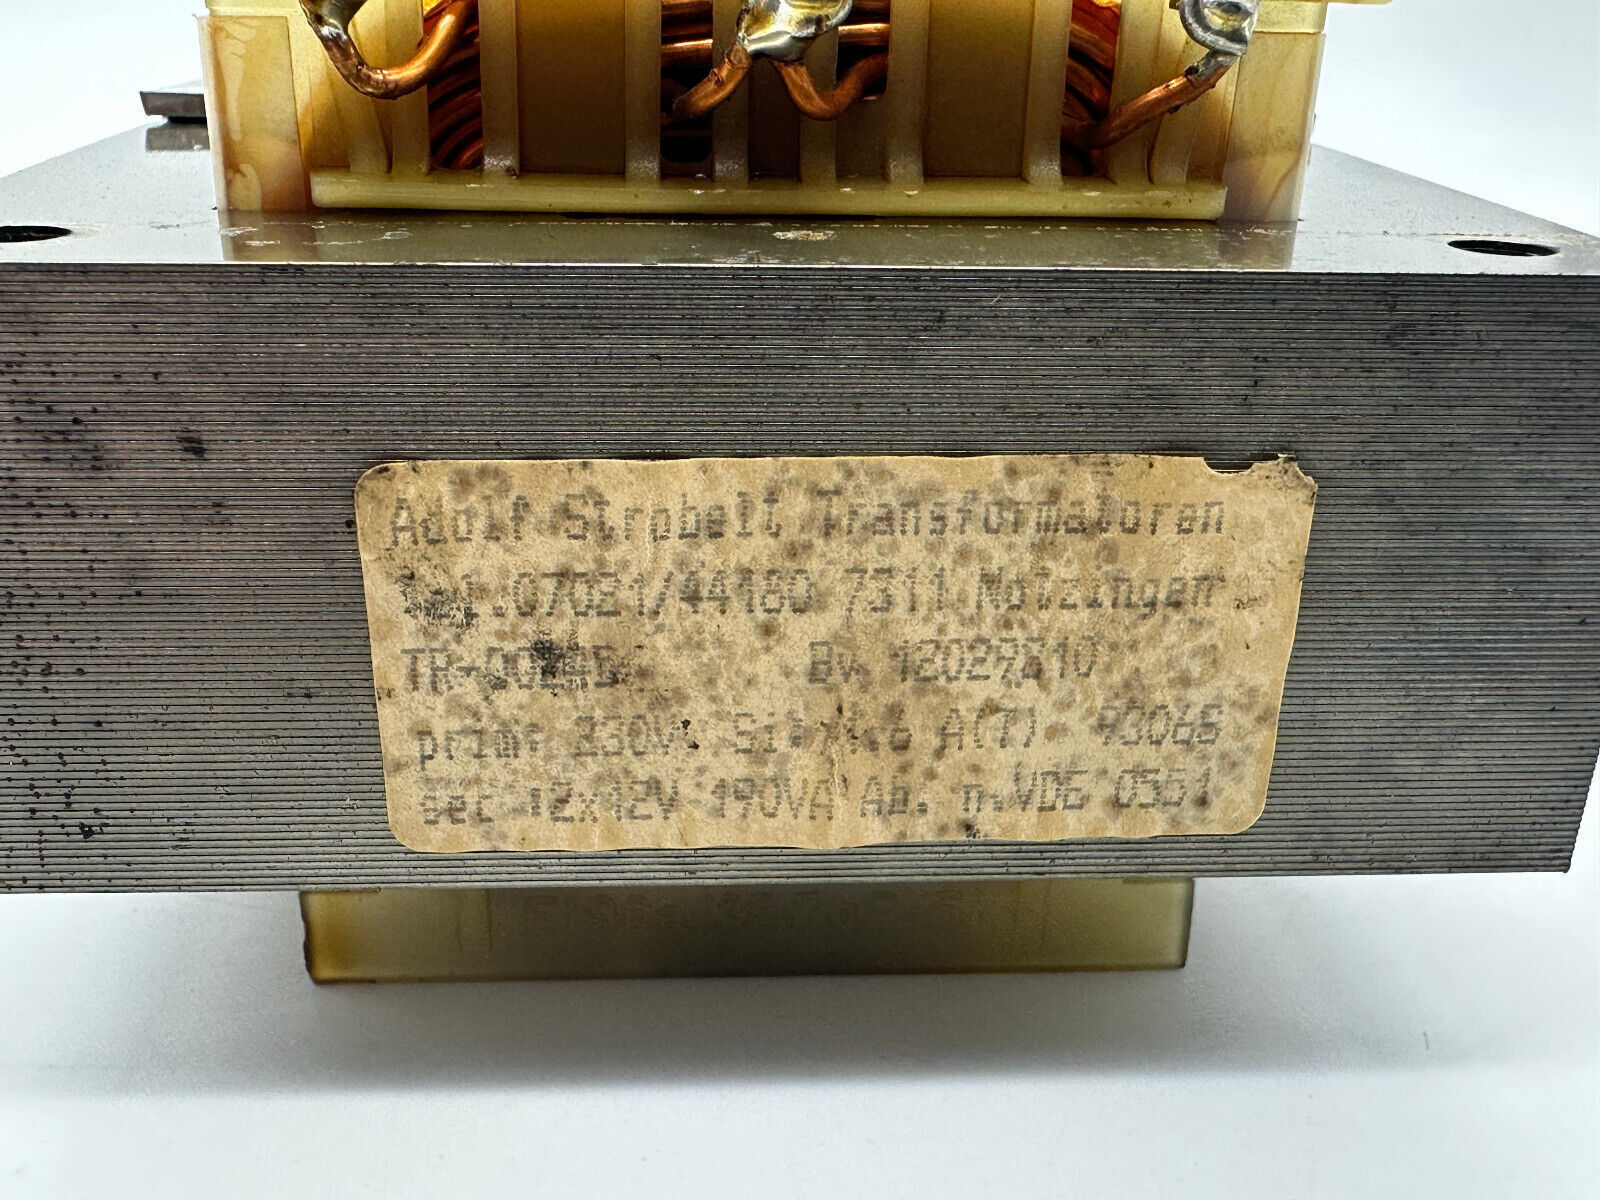 Adolf Strobelt Transformatoren
Tel.07021/44180 7311 Notzingen
Bv. 12029810
prim. 230V A(T) 93068
sec 12x12V 190VA Ab. n.VDE 0551